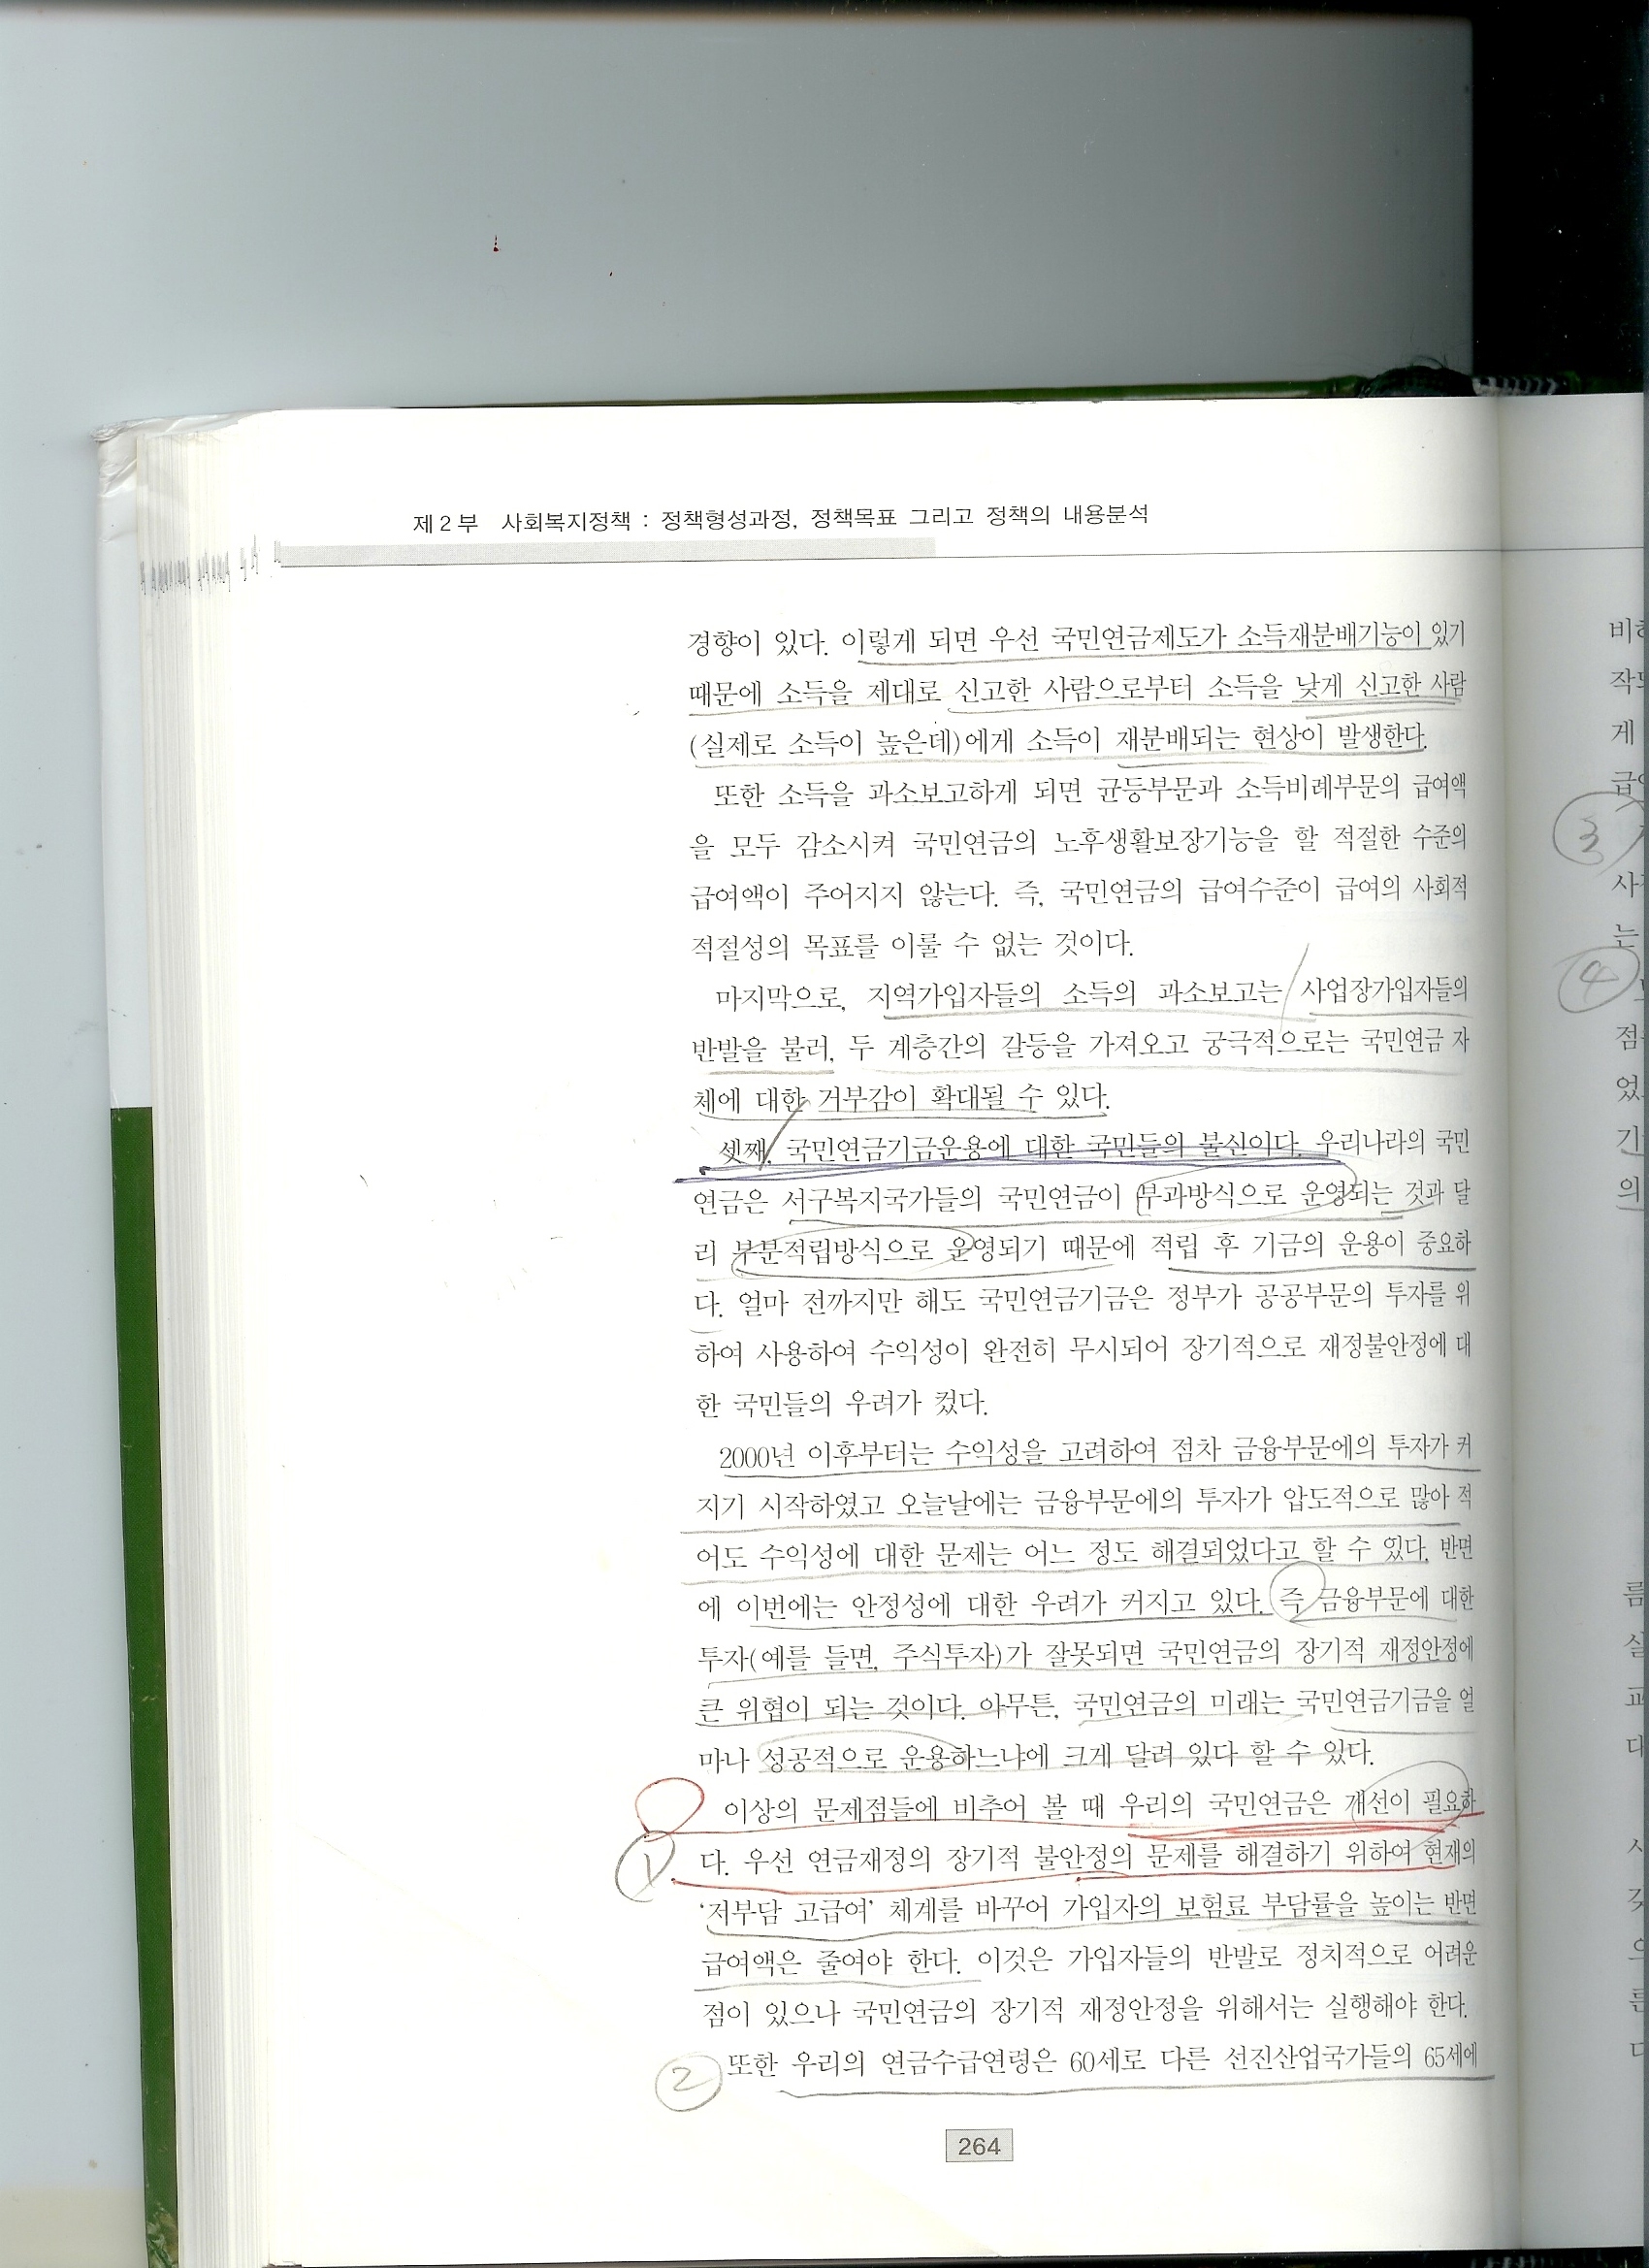 제2부 사회복지정책 : 정책형성과정, 정책목표 그리고 정책의 내용분석
경향이 있다. 이렇게 되면 우선 국민연금제도가 소득재분배기능이 있기
때문에 소득을 제대로 신고한 사람으로부터 소득을 낮게 신고한 사람
(실제로 소득이 높은데)에게 소득이 재분배되는 현상이 발생한다.
또한 소득을 과소보고하게 되면 균등부문과 소득비례부문의 급여액
을 모두 감소시켜 국민연금의 노후생활보장기능을 할 적절한 수준의
급여액이 주어지지 않는다. 즉, 국민연금의 급여수준이 급여의 사회적
적절성의 목표를 이룰 수 없는 것이다.
마지막으로, 지역가입자들의 소득의 과소보고는 사업장가입자들의
반발을 불러, 두 계층간의 갈등을 가져오고 궁극적으로는 국민연금 자
체에 대한 거부감이 확대될 수 있다.
셋째, 국민연금기금운용에 대한 국민들의 불신이다. 우리나라의 국민
연금은 서구복지국가들의 국민연금이 부과방식으로 운영되는 것과 달
리 부분적립방식으로 운영되기 때문에 적립 후 기금의 운용이 중요하
다. 얼마 전까지만 해도 국민연금기금은 정부가 공공부문의 투자를 위
하여 사용하여 수익성이 완전히 무시되어 장기적으로 재정불안정에 대
한 국민들의 우려가 컸다.
2000년 이후부터는 수익성을 고려하여 점차 금융부문에의 투자가 커
지기 시작하였고 오늘날에는 금융부문에의 투자가 압도적으로 많아 적
어도 수익성에 대한 문제는 어느 정도 해결되었다고 할 수 있다. 반면
에 이번에는 안정성에 대한 우려가 커지고 있다. 즉 금융부문에 대한
투자(예를 들면, 주식투자)가 잘못되면 국민연금의 장기적 재정안정에
큰 위협이 되는 것이다. 아무튼, 국민연금의 미래는 국민연금기금을 얼
마나 성공적으로 운용하느냐에 크게 달려 있다 할 수 있다.
이상의 문제점들에 비추어 볼 때 우리의 국민연금은 개선이 필요하
① 다. 우선 연금재정의 장기적 불안정의 문제를 해결하기 위하여 현재의
'저부담 고급여' 체계를 바꾸어 가입자의 보험료 부담률을 높이는 반면
급여액은 줄여야 한다. 이것은 가입자들의 반발로 정치적으로 어려운
점이 있으나 국민연금의 장기적 재정안정을 위해서는 실행해야 한다.
② 또한 우리의 연금수급연령은 60세로 다른 선진산업국가들의 65세에
264
작
게
③
④
는
점
었
간
의